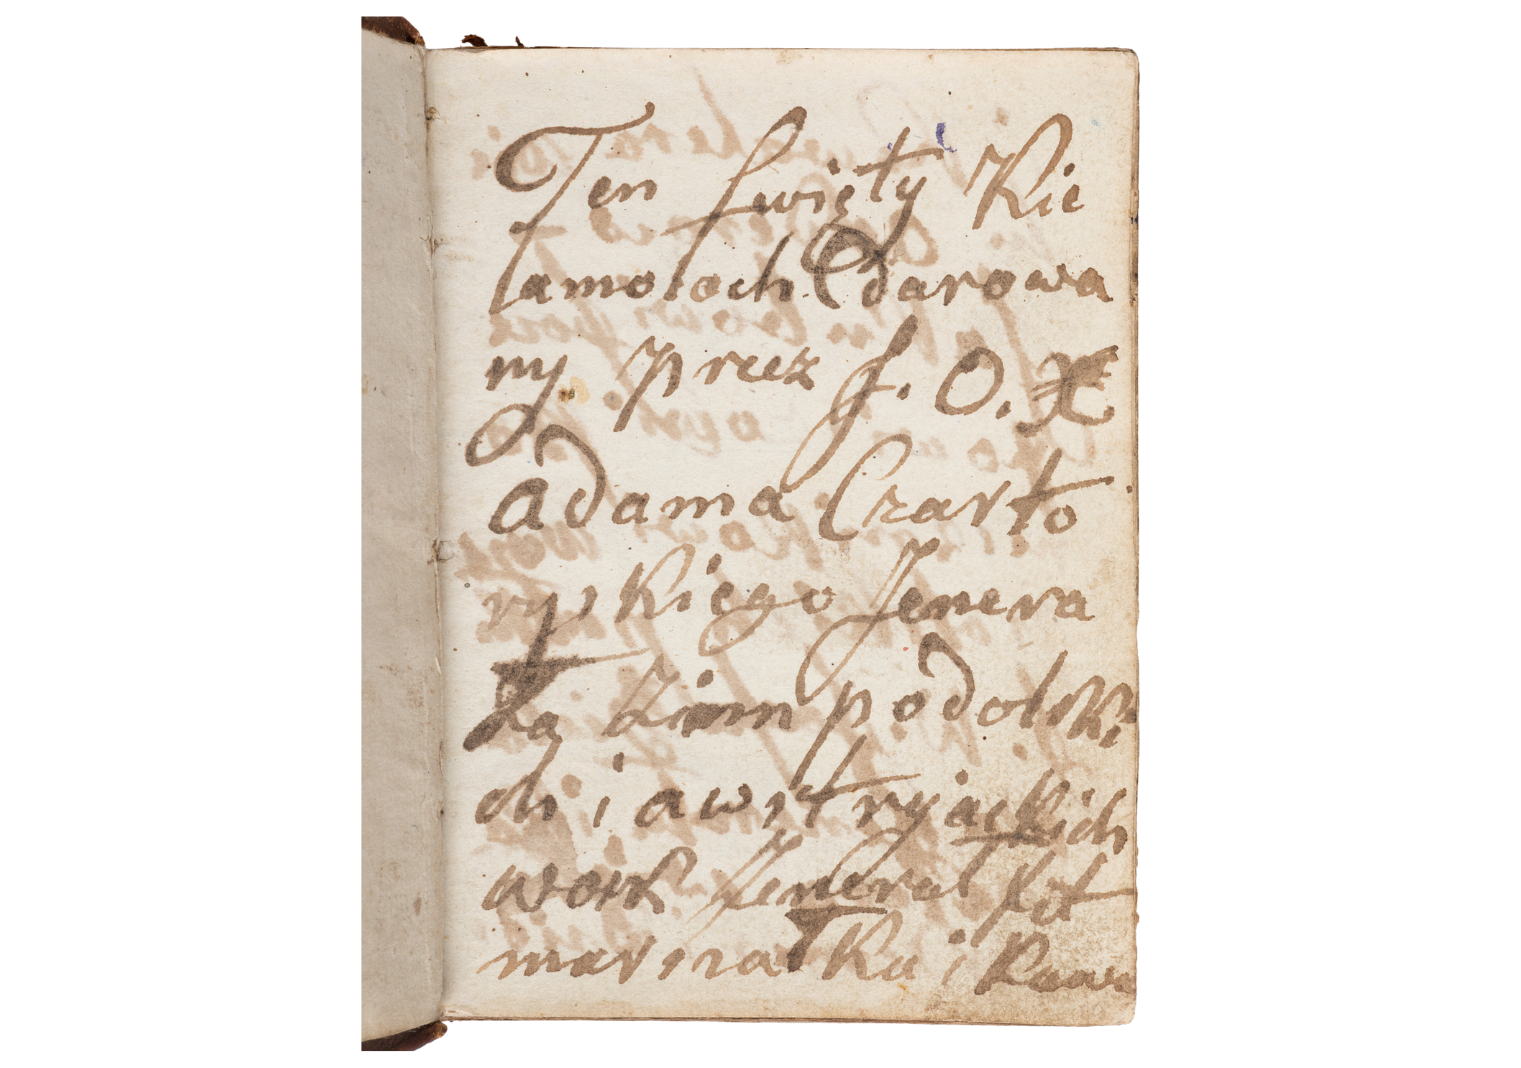 Ten swięty Kie
lamoloch darowa
ny przez J. O. X
Adama Czarto
ryskiego Jenera
ła Ziem podolski
ch i awstryjackich
worsk Jeneral Felt
marszałka i Kawa